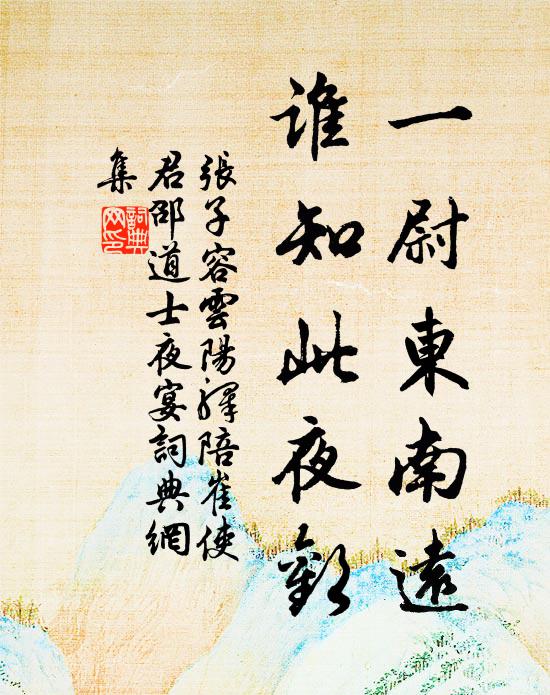 一尉東南遠
誰知此夜歡
張子容雲陽驛陪崔使
君邵道士夜宴詞典網
集
詞典
网印